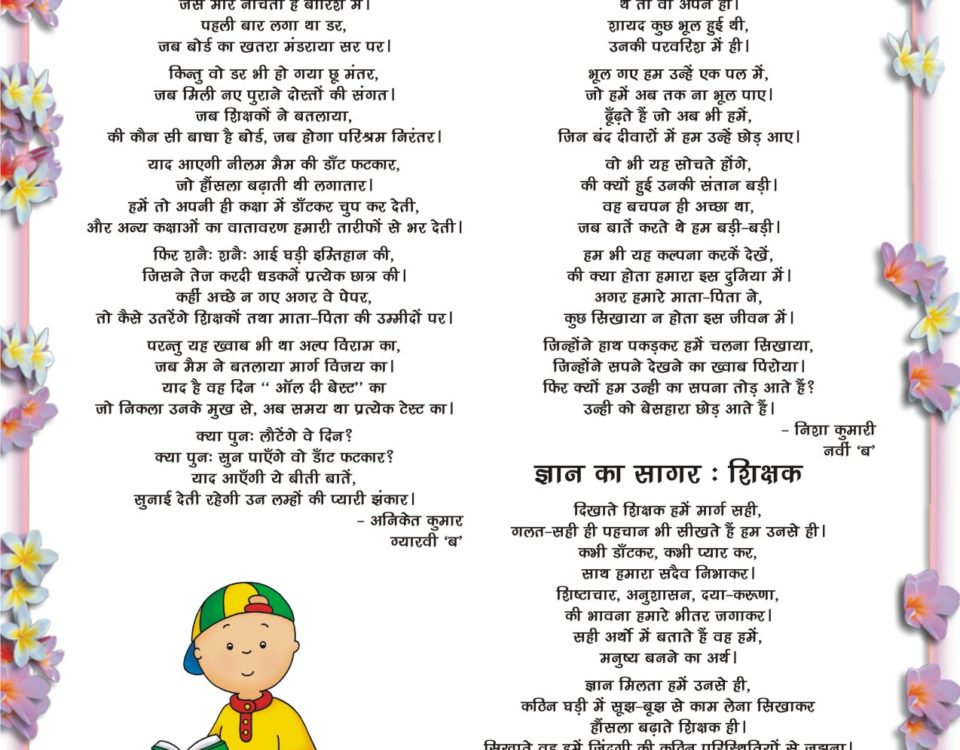 जैसे मोर नाचता है बारिश में।
पहली बार लगा था डर,
जब बोर्ड का खतरा मंडराया सर पर।
किन्तु वो डर भी हो गया छू मंतर,
जब मिली नए पुराने दोस्तों की संगत।
जब शिक्षकों ने बतलाया,
की कौन सी बाधा है बोर्ड, जब होगा परिश्रम निरंतर।
याद आएगी नीलम मैम की डाँट फटकार,
जो हौंसला बढ़ाती थी लगातार।
हमें तो अपनी ही कक्षा में डाँटकर चुप कर देती,
और अन्य कक्षाओं का वातावरण हमारी तारीफों से भर देती।
फिर शनैः शनैः आई घड़ी इम्तिहान की,
जिसने तेज करदी धडकनें प्रत्येक छात्र की।
कहीं अच्छे न गए अगर वे पेपर,
तो कैसे उतरेंगे शिक्षकों तथा माता-पिता की उम्मीदों पर।
परन्तु यह ख्वाब भी था अल्प विराम का,
जब मैम ने बतलाया मार्ग विजय का।
याद है वह दिन “ ऑल दी बेस्ट” का
जो निकला उनके मुख से, अब समय था प्रत्येक टेस्ट का।
क्या पुनः लौटेंगे वे दिन?
क्या पुनः सुन पाएँगे वो डाँट फटकार?
याद आएँगी ये बीती बातें,
सुनाई देती रहेगी उन लम्हों की प्यारी झंकार।
- अनिकेत कुमार
ग्यारवी ‘ब’
थे तो वो अपने ही।
शायद कुछ भूल हुई थी,
उनकी परवरिश में ही।
भूल गए हम उन्हें एक पल में,
जो हमें अब तक ना भूल पाए।
ढूँढ़ते हैं जो अब भी हमें,
जिन बंद दीवारों में हम उन्हें छोड़ आए।
वो भी यह सोचते होंगे,
की क्यों हुई उनकी संतान बड़ी।
वह बचपन ही अच्छा था,
जब बातें करते थे हम बड़ी-बड़ी।
हम भी यह कल्पना करकें देखें,
की क्या होता हमारा इस दुनिया में।
अगर हमारे माता-पिता ने,
कुछ सिखाया न होता इस जीवन में।
जिन्होंने हाथ पकड़कर हमें चलना सिखाया,
जिन्होंने सपने देखने का ख्वाब पिरोया।
फिर क्यों हम उन्ही का सपना तोड़ आते हैं?
उन्ही को बेसहारा छोड़ आते हैं।
- निशा कुमारी
नवीं ‘ब’
ज्ञान का सागर : शिक्षक
दिखाते शिक्षक हमें मार्ग सही,
गलत-सही ही पहचान भी सीखते हैं हम उनसे ही।
कभी डाँटकर, कभी प्यार कर,
साथ हमारा सदैव निभाकर।
शिष्टाचार, अनुशासन, दया-करूणा,
की भावना हमारे भीतर जगाकर।
सही अर्थो में बताते हैं वह हमें,
मनुष्य बनने का अर्थ।
ज्ञान मिलता हमें उनसे ही,
कठिन घड़ी में सूझ-बूझ से काम लेना सिखाकर
हौंसला बढ़ाते शिक्षक ही।
सिखाते वह हमें जिंदगी की कठिन परिस्थितियों से जूझना।